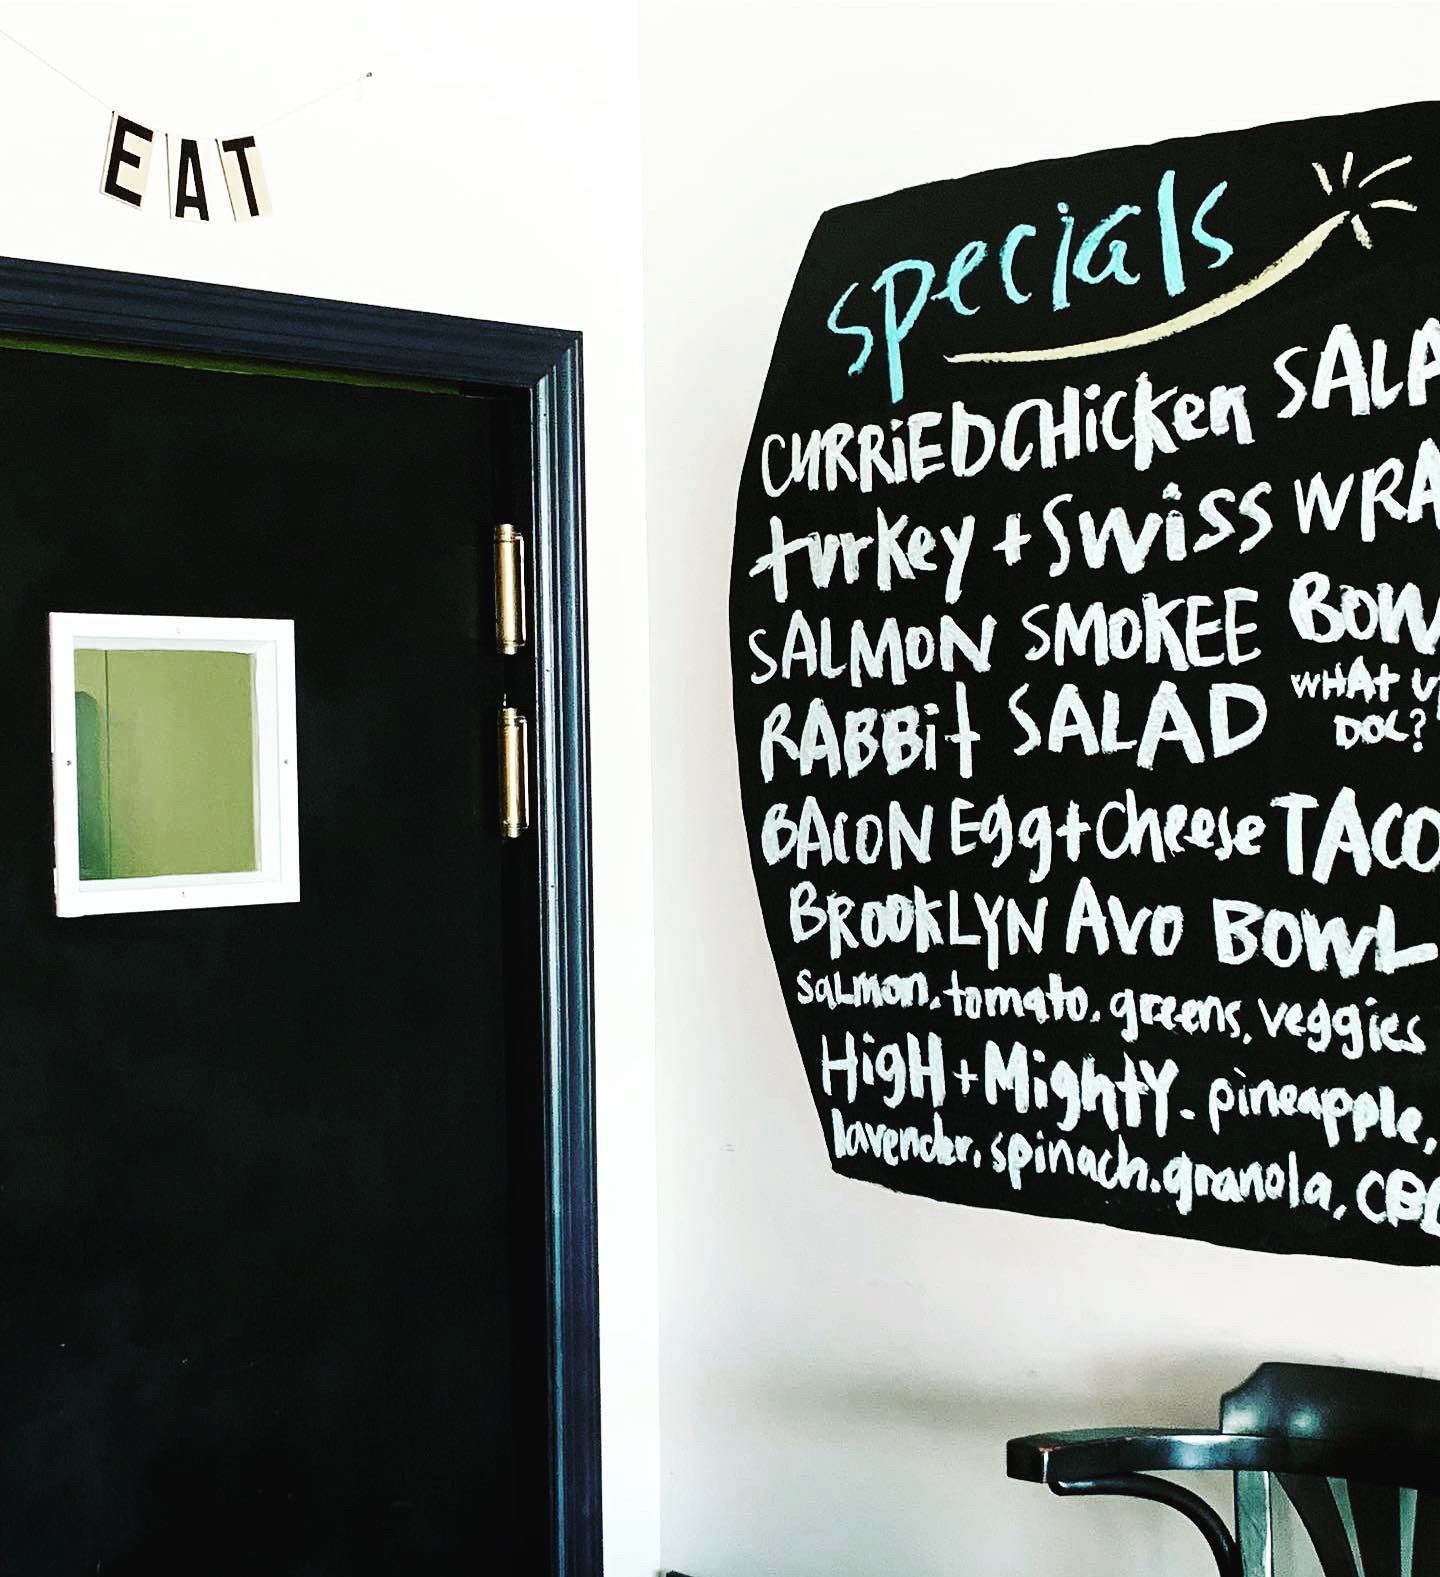 EAT
specials
CURRiED CHicken SALA
turkey + Swiss WRA
SALMON SMOKEE BOW
RABBit SALAD WHAt U
DOC?
BACON Egg + Cheese TACO
BROOKLYN Avo BOWL
salmon, tomato, greens, veggies
HigH + MightY. pineapple,
lavender, spinach, granola, CBD